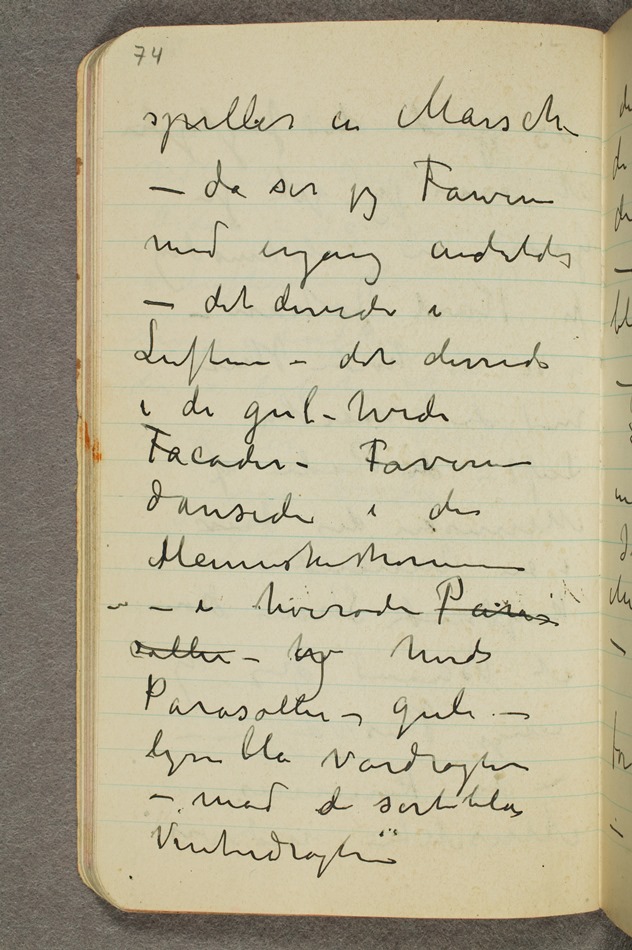 74
spiller en Marsch
– da ser jeg Farven
med engang anderledes
– det dirrede i
Luften – det dirrede
i de gul-hvide
Facader – Farverne
dansede i den
Menneskestrømmen
– i høirøde Para-
soller – og hvide
Parasoller – gule –
lyseblå Vårdragter
– mod de sorteblå
Vinterdragter